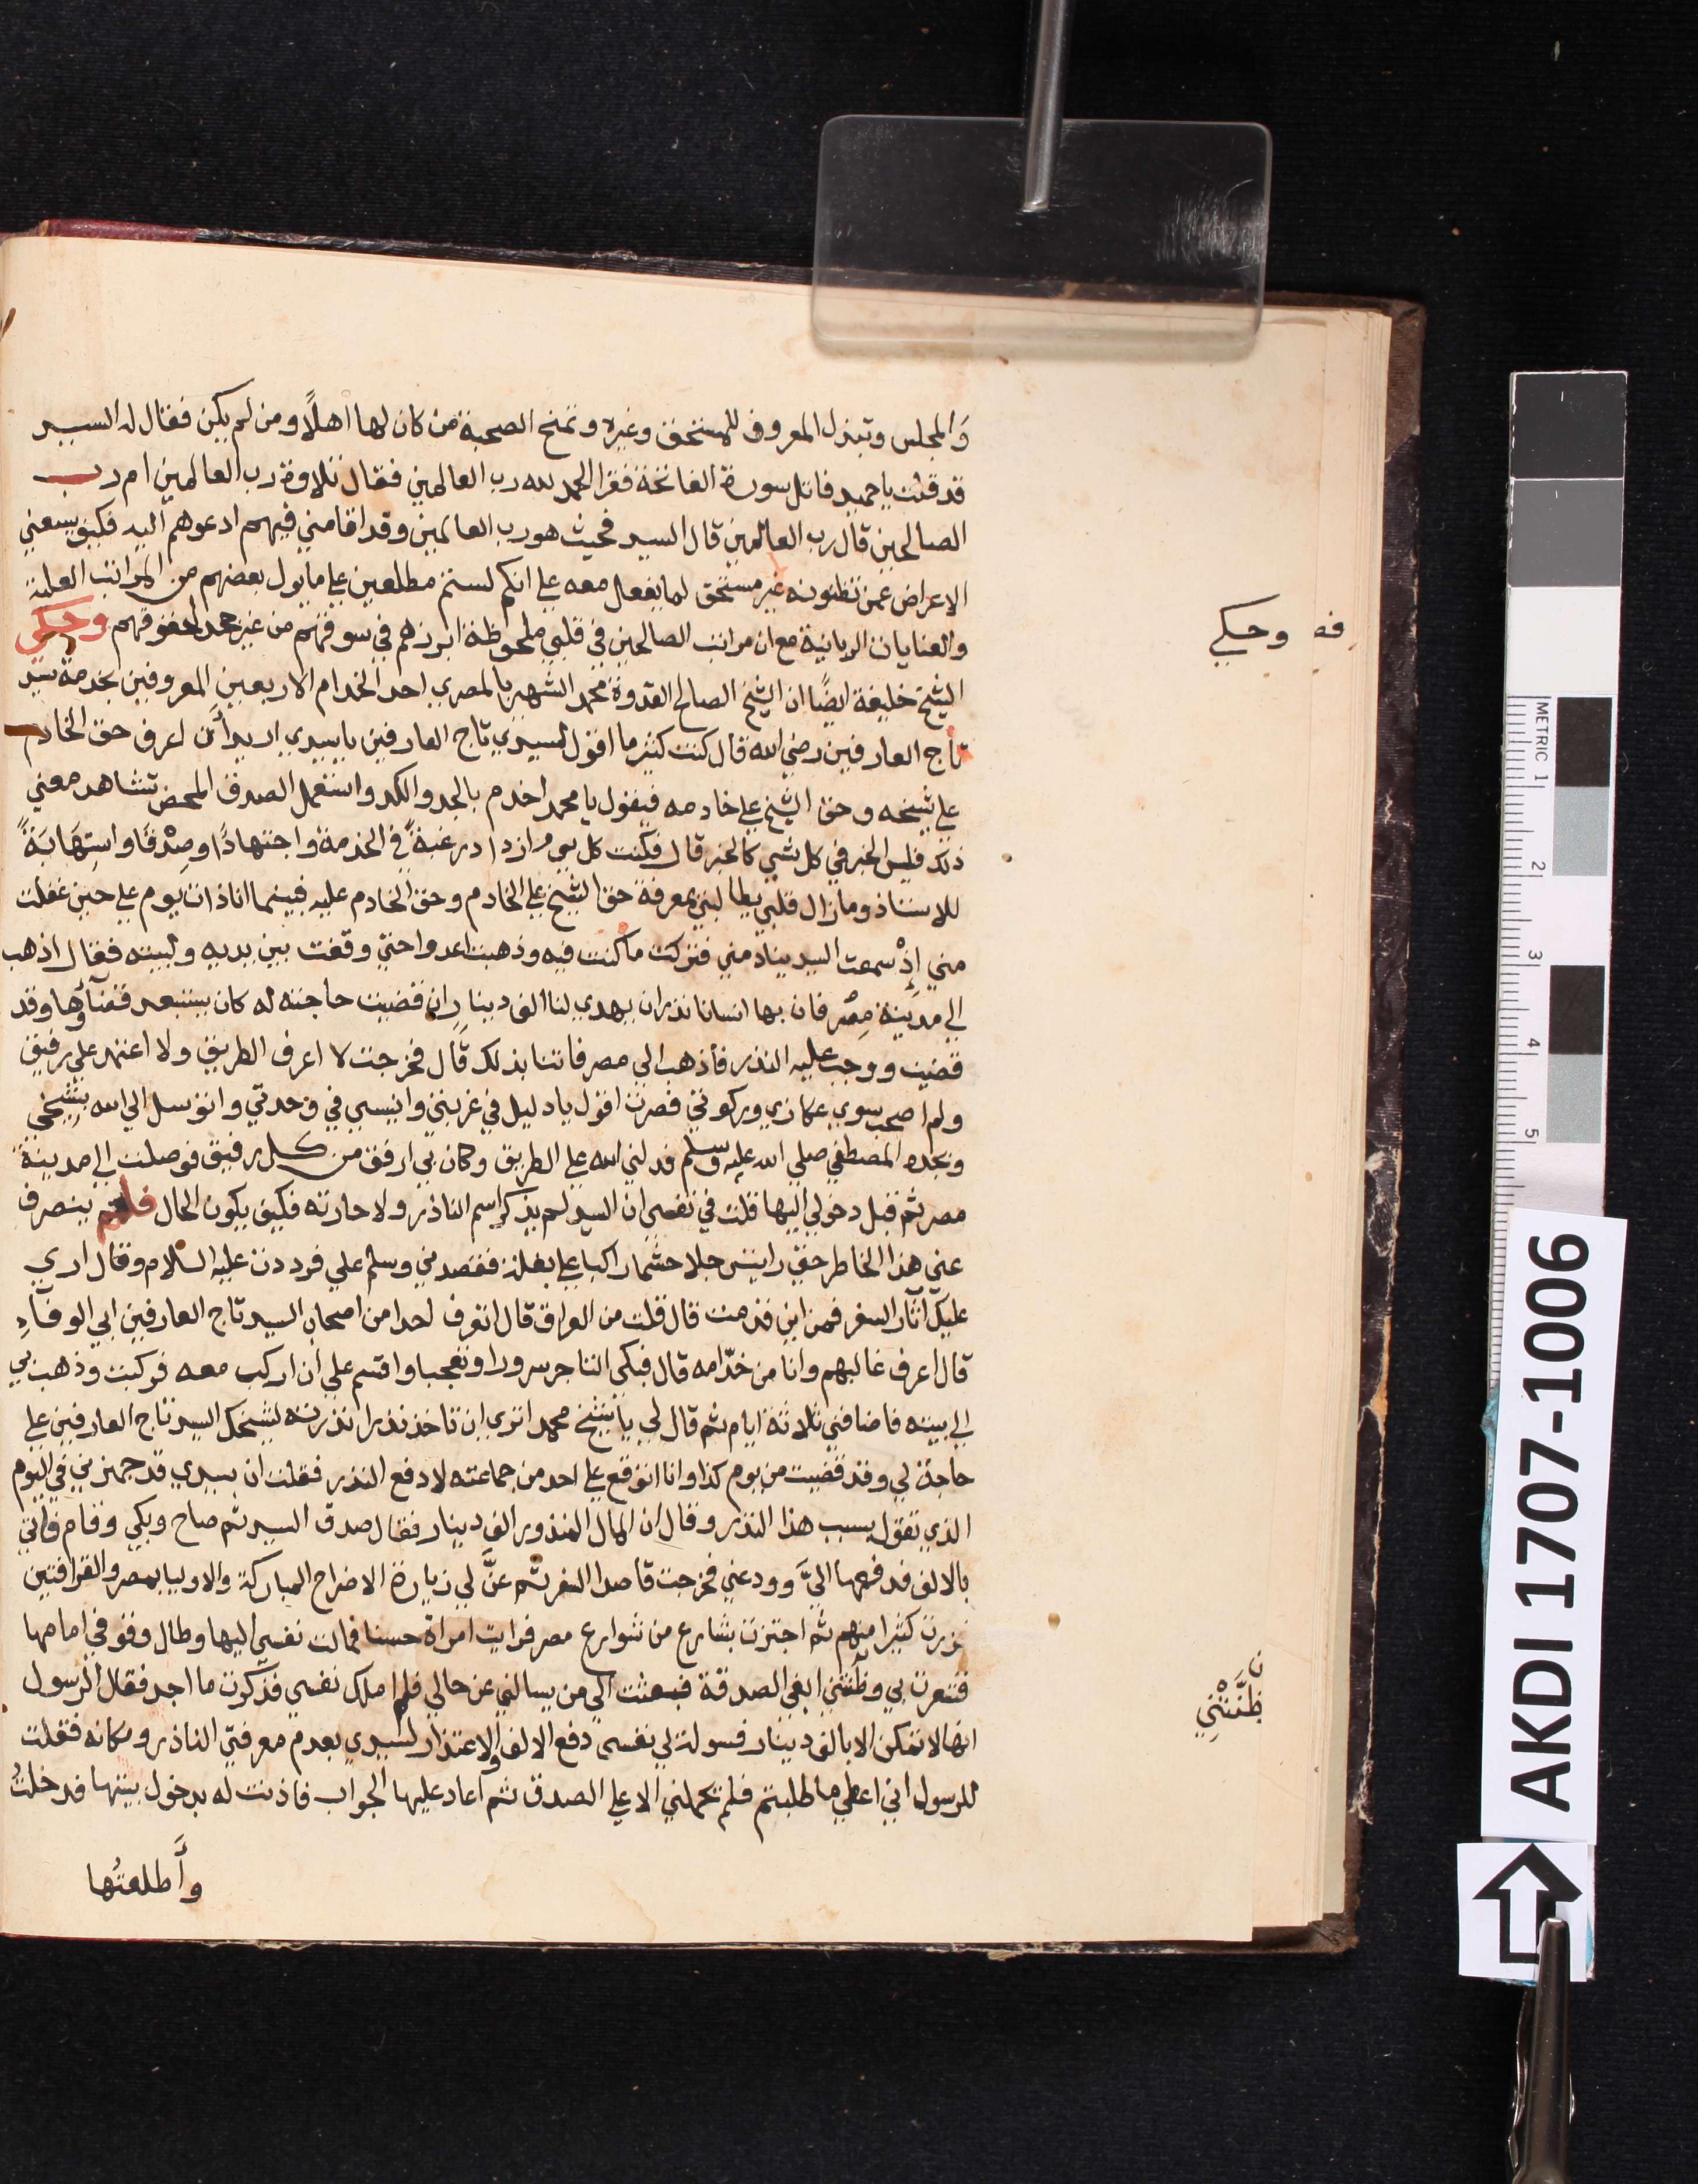 وَالمجلس وتبذل المعروف للمستحق وغيره وتمنح الصحبة من كان لها اهلًا ومن لم يكن فقال له السيد
قد قلت يا حميد فاتل سورة الفاتحة فقرا الحمد لله رب العالمين فقال تلاوة رب العالمين ام رب
الصالحين قال رب العالمين قال السيد فحيث هو رب العالمين وقد اقامني فيهم ادعوهم اليه فكيف يسعني
الاعراض عمن تظنونه غير مستحق لما يفعل معه علي انكم لستم مطلعين علي ما يول بعضهم من المراتب العلية
والعنايات الربانية مع ان مراتب الصالحين في قلبي ملحوظة ابرزهم في سوقهم من غير جحد لحقوقهم وحكي
الشيخ خليفة ايضًا ان الشيخ الصالح القدوة محمد الشهير بالمصري احد الخدام الاربعين المعروفين بخدمة سيد
تاج العارفين رضي الله قال كنت كثير ما اقول لسيدي تاج العارفين يا سيدي اريد أن اعرف حق الخادم
علي شيخه وحق الشيخ علي خادمه فيقول يا محمد اخدم بالجد والكد واستعمل الصدق المحض تشاهد معني
ذلك فليس الخبر في كل شي كالخبر قال فكنت كل يوم ازداد رغبةً في الخدمة واجتهادًا وصِدْقًا واستِهَابَةً
للاستاذ وما زال قلبي يطالبني بمعرفة حق الشيخ علي الخادم وحق الخادم عليه فبينما انا ذات يوم علي حين غفلت
مني إِذْ سمعت السيد يناد مني فتركت ما كنت فيه وذهبت اعدوا حتي وقفت بين يديه ولبيته فقال اذهب
الي مدينة مِصْر فان بها انسانا نذر ان يهدي لنا الف دينارِ ان قضيت حاجته له كان يستبعد قضآؤُها وقد
قضيت ووجب عليه النذر فأذهب الي مصر فاتنا بذلك قال فخرجت لا اعرف الطريق ولا اعتمد علي رفيق
ولم اصحب سوي عكازي وركوتي فصرت اقول يا دليل في غربتي وانيسي في وحدتي واتوسل الي الله بشيخي
وبجده المصطفي صلي الله عليه وسلم فدلني الله علي الطريق وكان بي ارفق من كل رفيق فوصلت الي مدينة
مصر ثم قبل دخولي اليها قلت في نفسي ان السيد لم يذكر اسم الناذر ولا حارته فكيف يكون الحال فلم ينصرف
عني هذا الخاطر حتي رايت رجلا حشما راكبا علي بغلة فقصدني وسلم علي فرددت عليه السلام وقال اري
عليك آثار السفر فمن اين قدمت قال قلت من العراق قال اتعرف احدا من اصحاب السيد تاج العارفين ابي الوفآءِ
قال اعرف غالبهم وانا من خدّامه قال فبكي التاجر سرورا وتعجبا واقسم علي أن اركب معه فركبت وذهب بي
الي بيته فاضافني ثلاثة ايام ثم قال لي يا شيخ محمد اتري ان تاخذ نذرا نذرته لشيخك السيد تاج العارفين علي
حاجة لي وقد قضيت من يوم كذا وانا اتوقع علي احد من جماعته لادفع النذر فقلت ان سيدي قد جهزني في اليوم
الذي تقول بسبب هذا النذر وقال ان المال المنذور الف دينار فقال صدق السيد ثم صاح وبكي وقام فأتي
بالالف فدفعها اليَّ وودعني فخرجت قاصدا السفر ثم عنَّ لي زيارة الاضراح المباركة والاوليا بمصر والقرافتين
فزرت كثيرا منهم ثم اجتزت بشارع من شوارع مصر فرايت امراة حسنا فمالت نفسي اليها وطال وقوفي امامها
فشعرت بي وظنتني ابغي الصدقة فبعثت الي من يسالني عن حالي فلم املك نفسي فذكرت ما اجد فقال الرسول
انها لا تمكن الا بالف دينار فسولت لي نفسي دفع الالف والاعتذار لسيدي بعدم معرفتي الناذر ومكانه فقلت
للرسول اني اعطي ما طلبتم فلم تحملني الا علي الصدق ثم اعاد عليها الجواب فاذنت له بدخول بيتها فدخلتُ
وأَطلعتُها
فه وحكي
ن
ظَنَّتْنِي
AKDI 1707-1006
METRIC 1 2 3 4 5